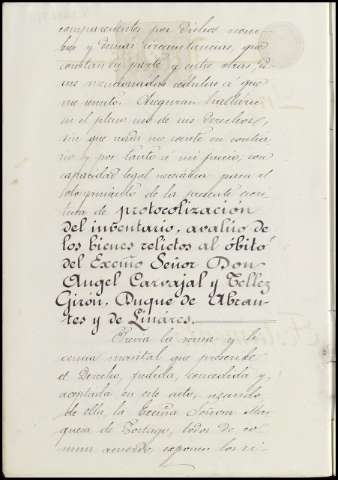 comparecientes por dichos nom-
bres y demas circunstancias, que
constan en parte y entre otras de
sus mencionadas cédulas á que
me remito. Aseguran hallarse
en el pleno uso de sus derechos,
sin que nada me conste en contra-
rio y por tanto á mi juicio, con
capacidad legal necesaria para el
otorgamiento de la presente escri-
tura de protocolización
del inventario, avalúo de
los bienes relictos al óbito
del Excmo Señor Don
Angel Carvajal y Tellez
Girón, Duque de Abran-
tes y de Linares.
Previa la venia y li-
cencia marital que previene
el Derecho, pedida, concedida y
aceptada en este acto, usando
de ella, la Excma Señora Mar-
quesa de Portago, todos de co-
mun acuerdo, exponen los si-